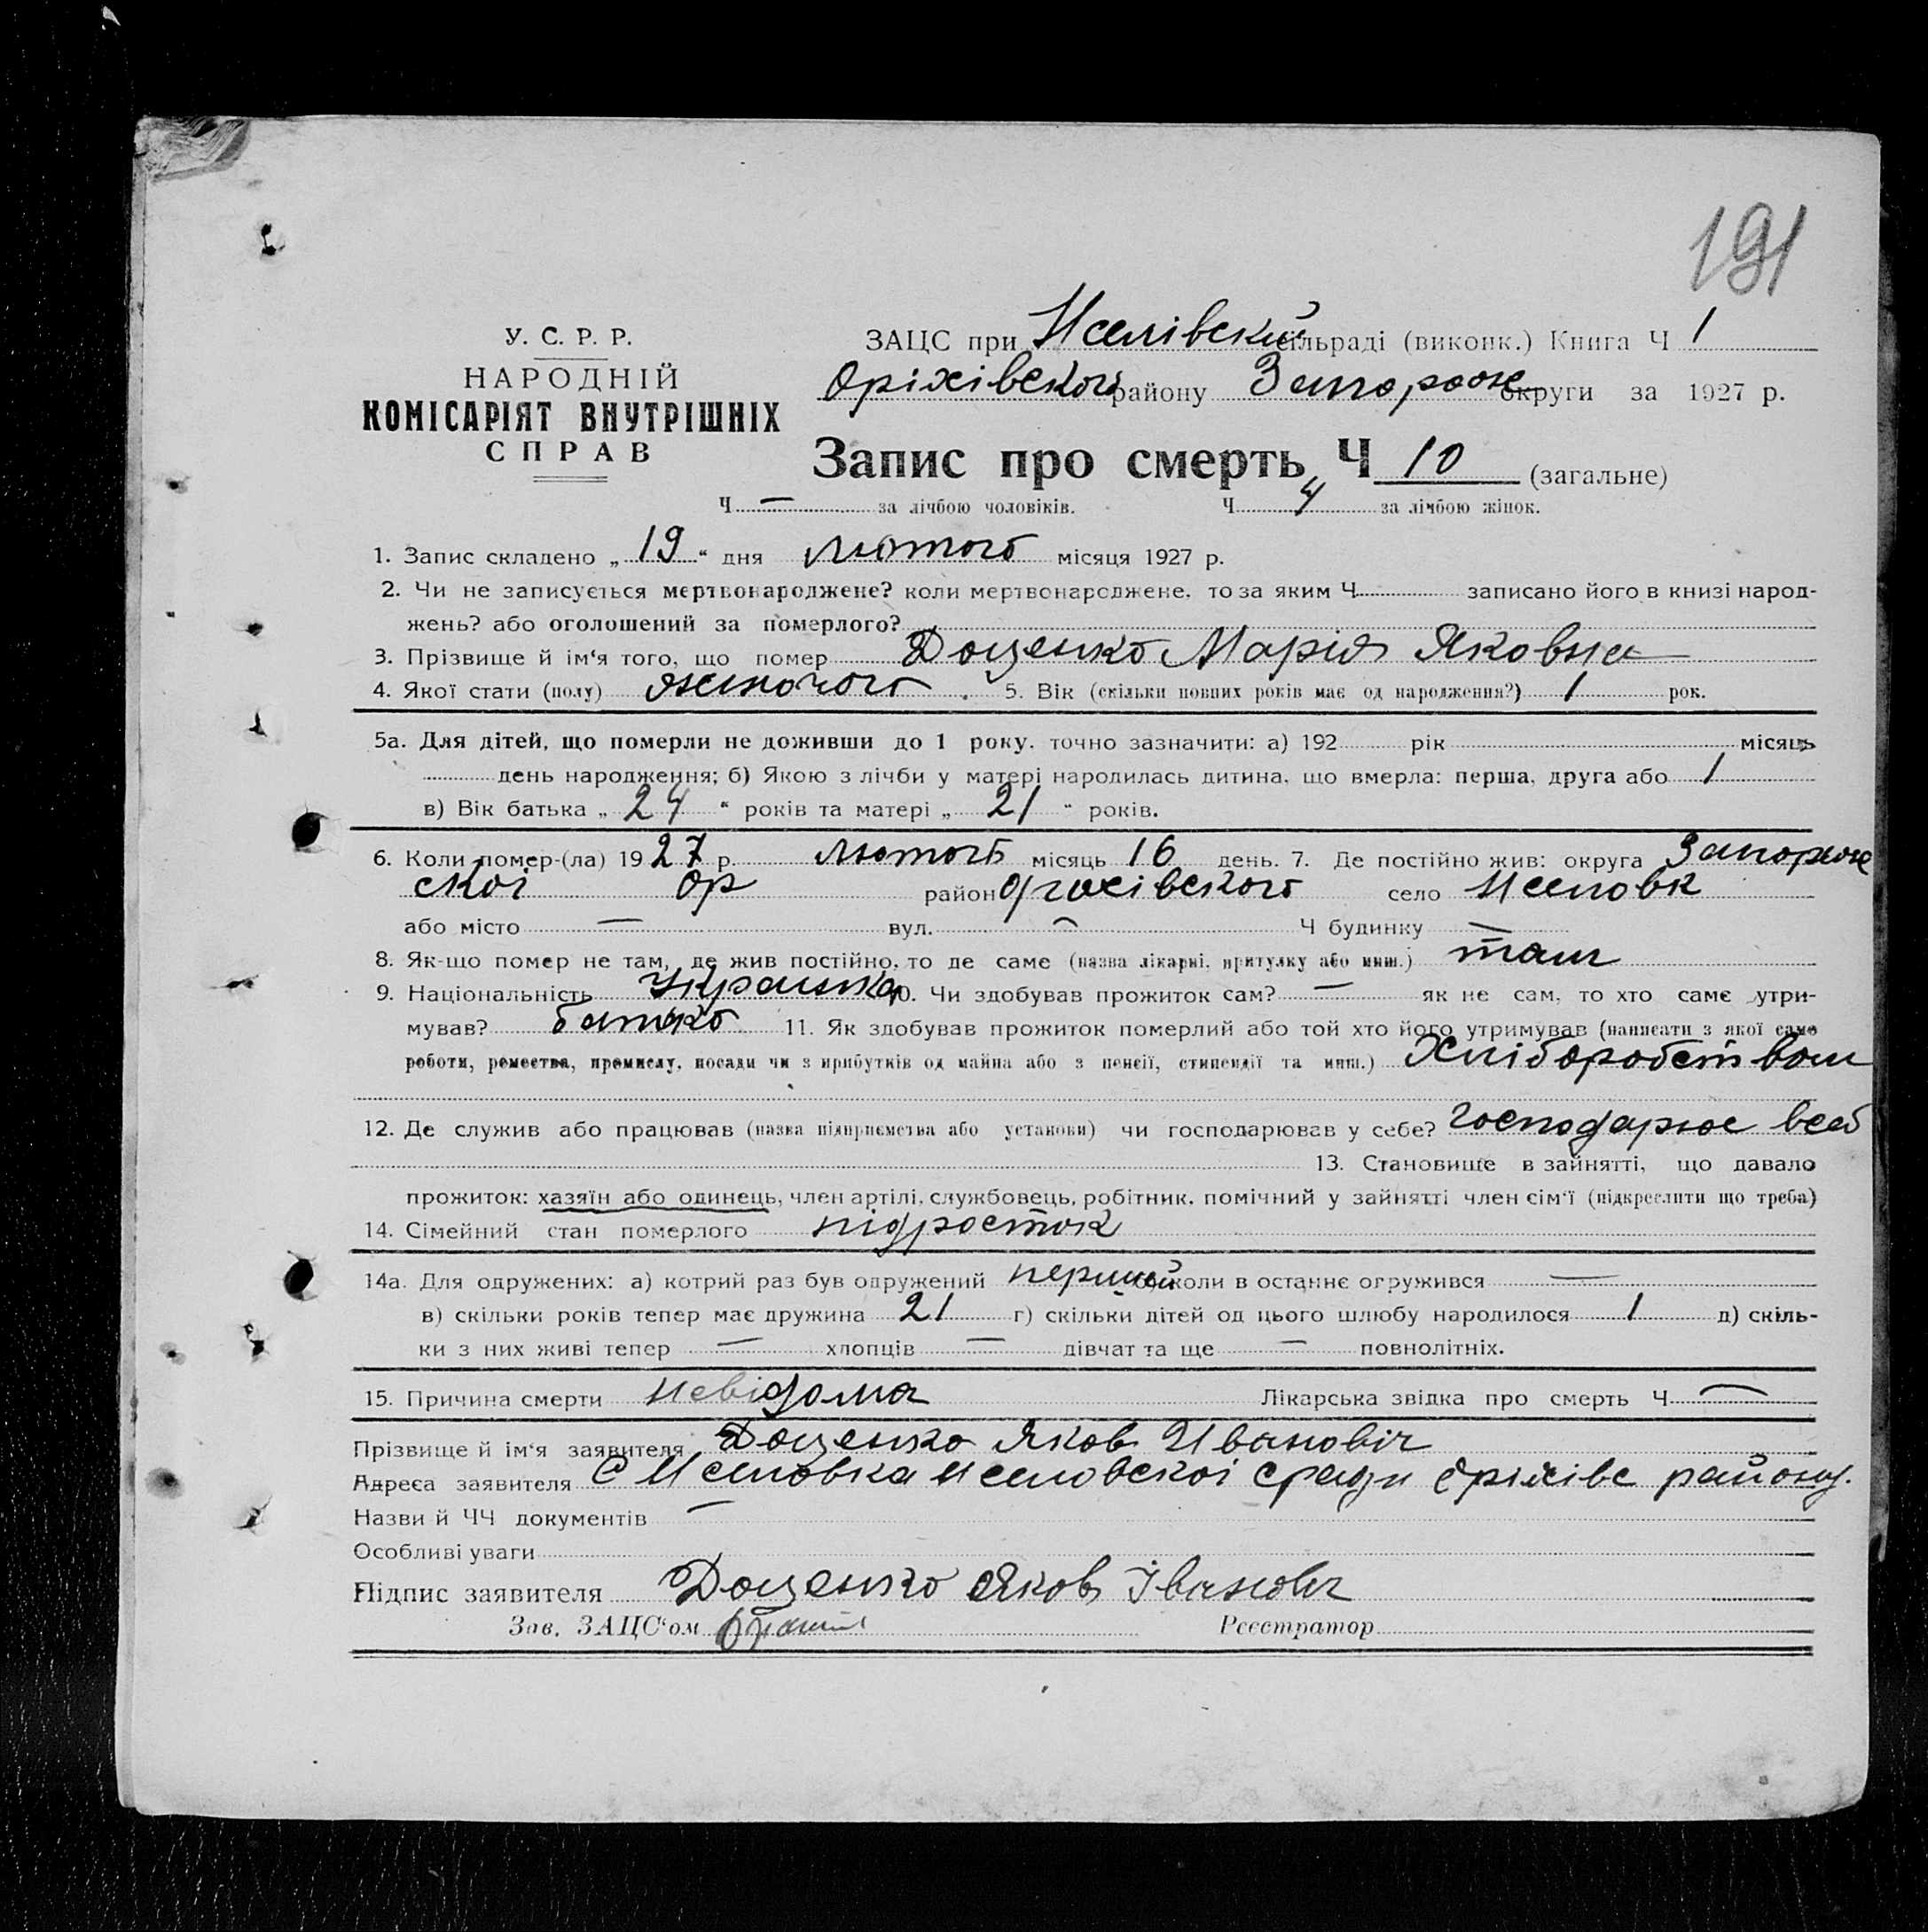 191
У. С. Р. Р.
НАРОДНІЙ
КОМІСАРІЯТ ВНУТРІШНІХ
СПРАВ
ЗАЦС при сільраді (виконк.) Книга Ч 1
Оріхівского району Запорож округи за 1927 р.
Запис про смерть Ч 10 (загальне)
Ч — за лічбою чоловіків. Ч 4 за лічбою жінок.
1. Запис складено „ 19 “ дня лютого місяця 1927 р.
2. Чи не записується мертвонароджене? коли мертвонароджене, то за яким Ч записано його в книзі народ-
жень? або оголошений за померлого?
3. Прізвище й ім‘я того, що помер Доценко Марія Яковна
4. Якої стати (полу) жиночого. 5. Вік (скільки повних років має од народження?) 1 рок.
5а. Для дітей, що померли не доживши до 1 року, точно зазначити: а) 192 рік місяць
день народження; б) Якою з лічби у матері народилась дитина, що вмерла: перша, друга або 1
в) Вік батька „ 24 “ років та матері „ 21 “ років.
6. Коли помер-(ла) 1927 р. лютого місяць 16 день. 7. Де постійно жив: округа Запорож
скоі ор район Оріхівского село
або місто — вул. — Ч будинку —
8. Як-що помер не там, де жив постійно, то де саме (назва лікарні, притулку або инш.) там
9. Національність Украинка 10. Чи здобував прожиток сам? — як не сам, то хто саме утри-
мував? батько 11. Як здобував прожиток померлий або той хто його утримував (написати з якої саме
роботи, ремества, промислу, посади чи з прибутків од майна або з пенсії, стипендії та инш.) Хліборобством
12. Де служив або працював (назва підприємства або установи) чи господарював у себе? господарює
13. Становище в зайнятті, що давало
прожиток: хазяїн або одинець, член артілі, службовець, робітник, помічний у зайнятті член сім‘ї (підкреслити що треба)
14. Сімейний стан померлого підросток
14а. Для одружених: а) котрий раз був одружений перший б) коли в останнє огружився —
в) скільки років тепер має дружина 21 г) скільки дітей од цього шлюбу народилося 1 д) скіль-
ки з них живі тепер — хлопців — дівчат та ще — повнолітніх.
15. Причина смерти невідома Лікарська звідка про смерть Ч —
Прізвище й ім‘я заявителя Доценко Яков Ивановіч
Адреса заявителя С сради оріхівс району.
Назви й ЧЧ документів —
Особливі уваги
Підпис заявителя Доценко Яков Івановіч
Зав. ЗАЦС‘ом Реєстратор